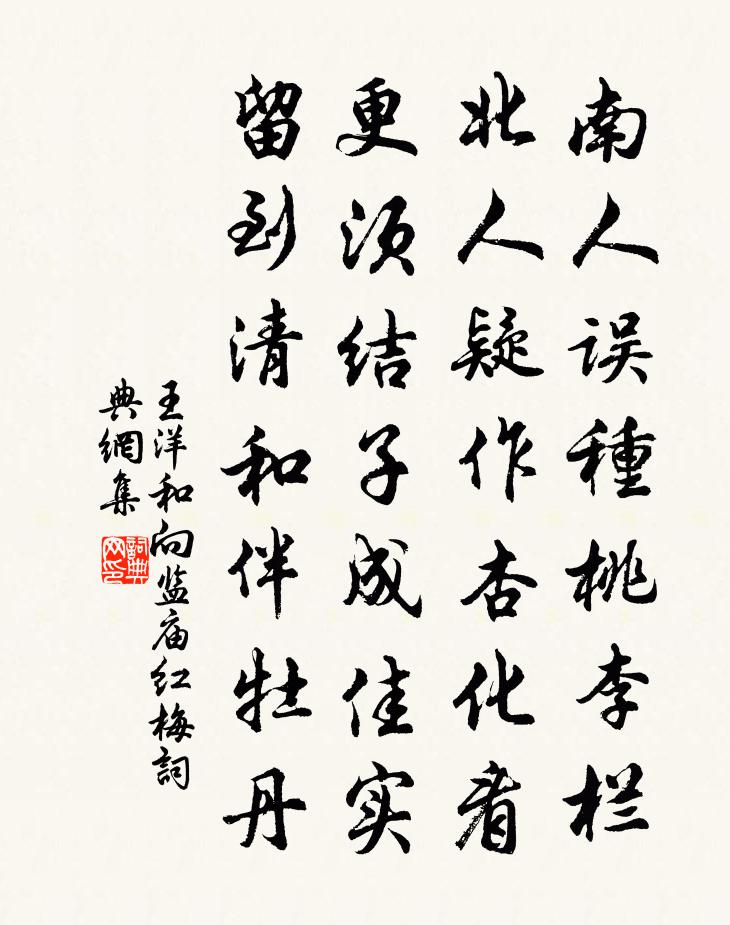 南人误種桃李栏
北人疑作杏化看
更须结子成佳实
留到清和伴牡丹
王洋和向监庙红梅詞
典網集
詞典网印